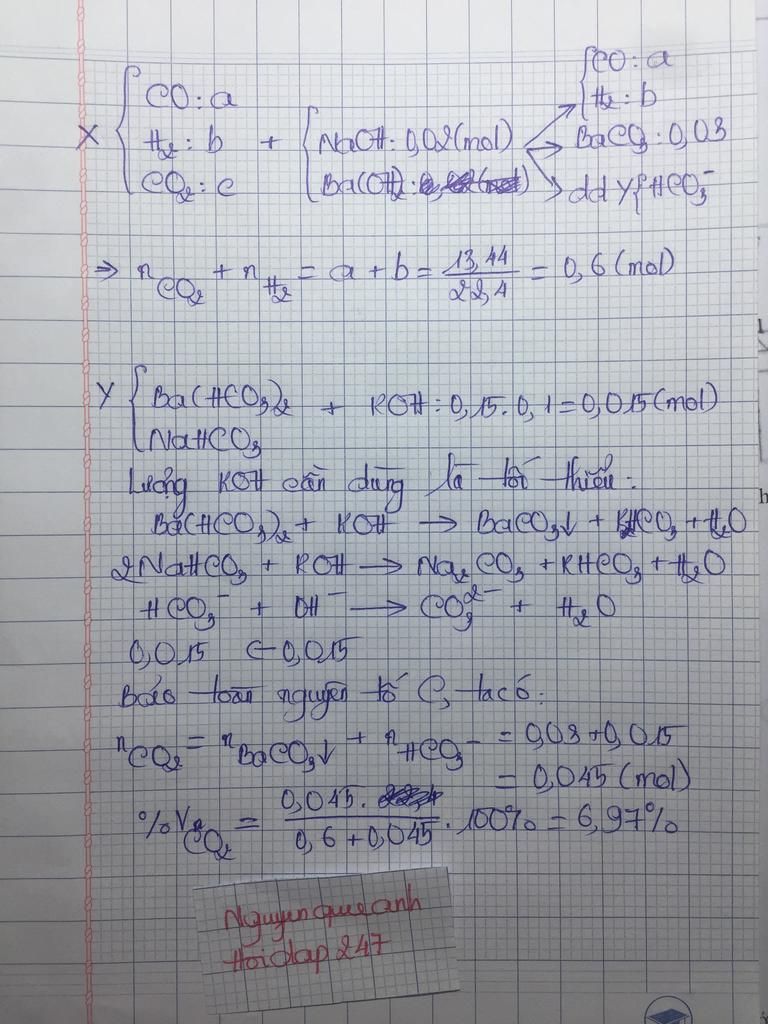 CO: a
H₂: b
CO: a
H₂: b
X
+
NaOH: 0,02 (mol)
BaCO₃: 0,03
CO₂: c
Ba(OH)₂:
dd Y { HCO₃⁻
=> n CO₂ + n H₂ = a + b = 13,44 / 22,4 = 0,6 (mol)
Y { Ba(HCO₃)₂ + KOH: 0,15 . 0,1 = 0,015 (mol)
NaHCO₃
Lượng KOH cần dùng là tối thiểu:
Ba(HCO₃)₂ + KOH → BaCO₃↓ + KHCO₃ + H₂O
2NaHCO₃ + KOH → Na₂CO₃ + KHCO₃ + H₂O
HCO₃⁻ + OH⁻ → CO₃²⁻ + H₂O
0,015 ← 0,015
Bảo toàn nguyên tố C, ta có:
n CO₂ = n BaCO₃↓ + n HCO₃⁻ = 0,03 + 0,015
= 0,045 (mol)
%V CO₂ = 0,045 . / 0,6 + 0,045 . 100% = 6,97%
Nguyenqueanh
Hoidap247